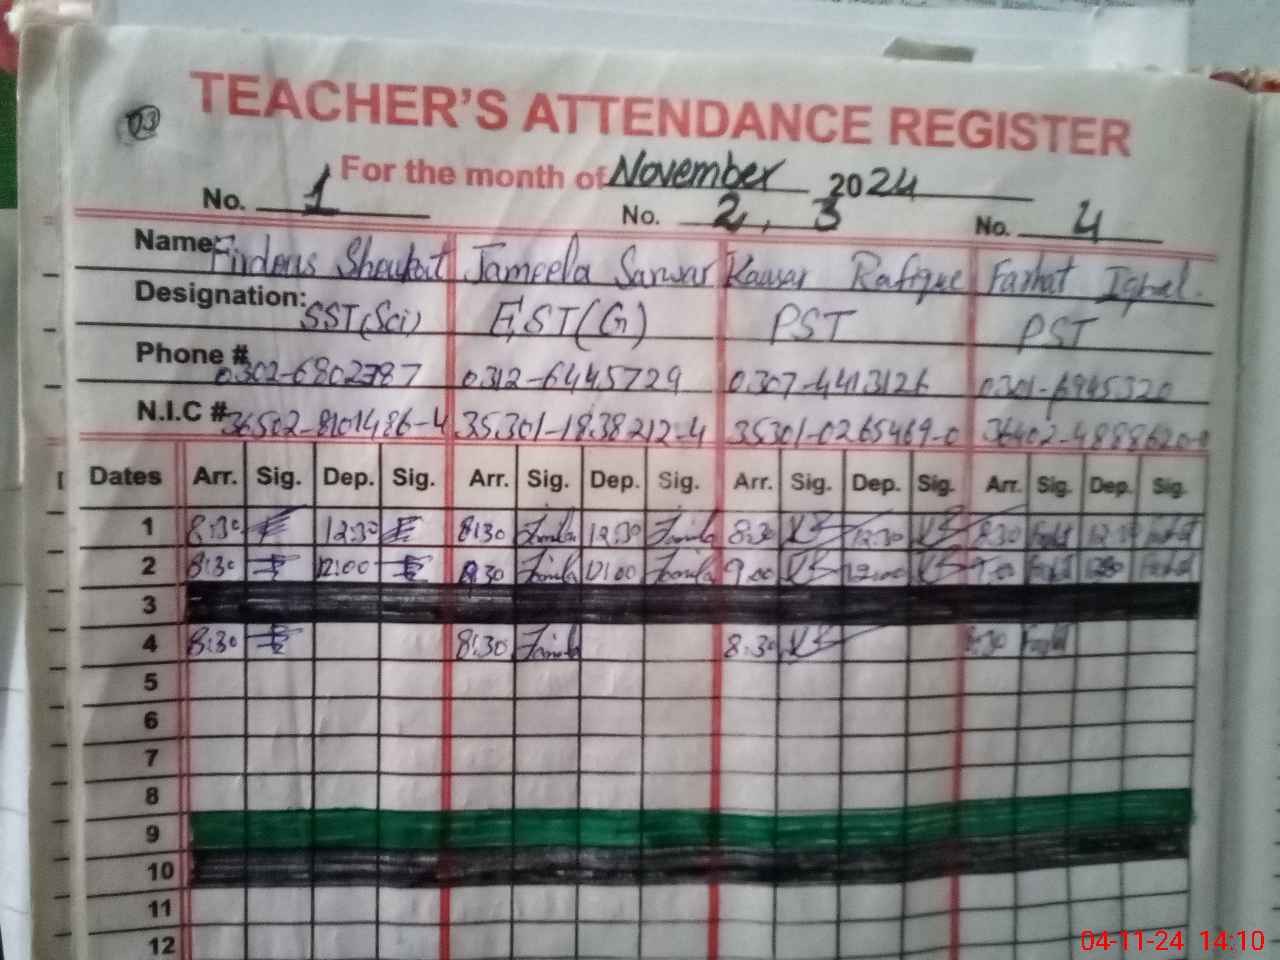 03
TEACHER'S ATTENDANCE REGISTER
For the month of November 2024
No. 1 No. 2, 3 No. 4
Name: Firdous Shoukat Jameela Sarwar Kausar Rafique Farhat Iqbal.
Designation: SST(Sci) EST(G) PST PST
Phone # 0302-6802787 0312-6445729 0307-4413126 0301-6945320
N.I.C # 36502-8101486-4 35301-1838212-4 35301-0265469-0 36402-4888620-
Dates Arr. Sig. Dep. Sig. Arr. Sig. Dep. Sig. Arr. Sig. Dep. Sig. Arr. Sig. Dep. Sig.
1 8:30 12:30 8:30 12:30 8:30 12:30 8:30 12:30
2 8:30 12:00 8:30 12:00 9:00 12:00
3
4 8:30 8:30 8:30 8:30
5
6
7
8
9
10
11
12
04-11-24 14:10